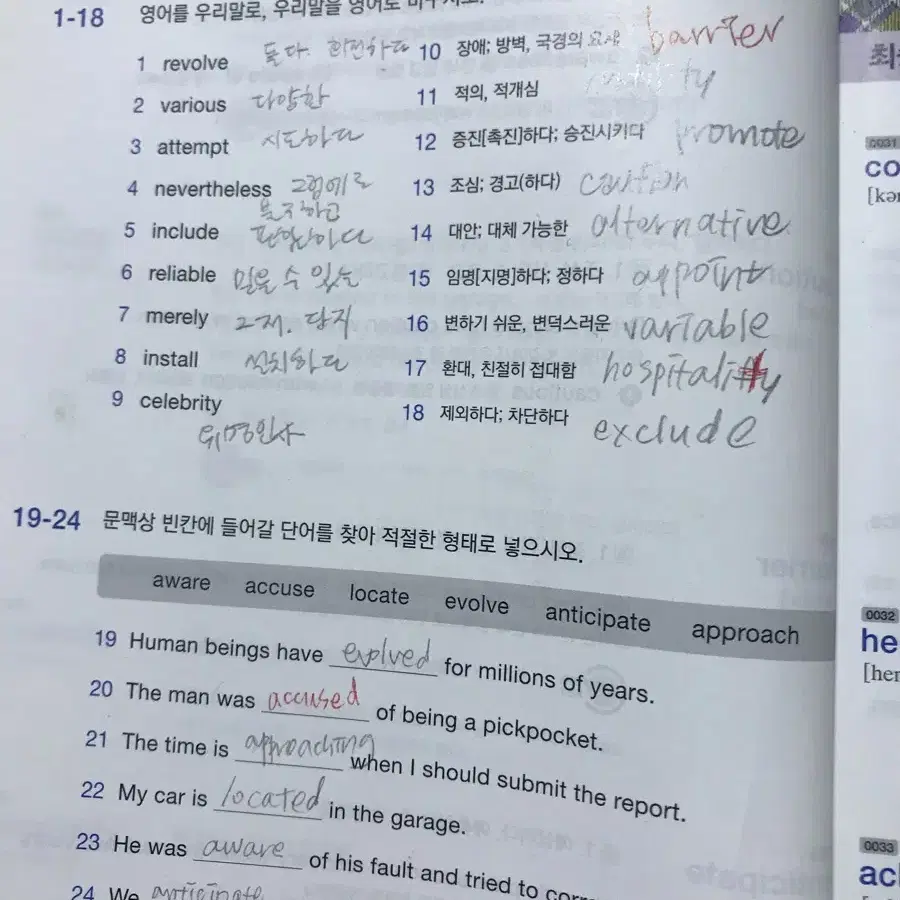 1-18 영어를 우리말로, 우리말을 영어로
1 revolve 돌다. 회전하다
2 various 다양한
3 attempt 시도하다
4 nevertheless 그럼에도 불구하고
5 include
6 reliable 믿을 수 있는
7 merely 그저. 단지
8 install 설치하다
9 celebrity
유명인사
10 장애; 방벽, 국경의 요새 barrier
11 적의, 적개심
12 증진[촉진]하다; 승진시키다 promote
13 조심; 경고(하다) caution
14 대안; 대체 가능한 alternative
15 임명[지명]하다; 정하다 appoint
16 변하기 쉬운, 변덕스러운 variable
17 환대, 친절히 접대함 hospitality
18 제외하다; 차단하다 exclude
19-24 문맥상 빈칸에 들어갈 단어를 찾아 적절한 형태로 넣으시오.
aware accuse locate evolve anticipate approach
19 Human beings have evolved for millions of years.
20 The man was accused of being a pickpocket.
21 The time is approaching when I should submit the report.
22 My car is located in the garage.
23 He was aware of his fault and tried to
24 We anticipate
최
0031
co
0032
he
[her
0033